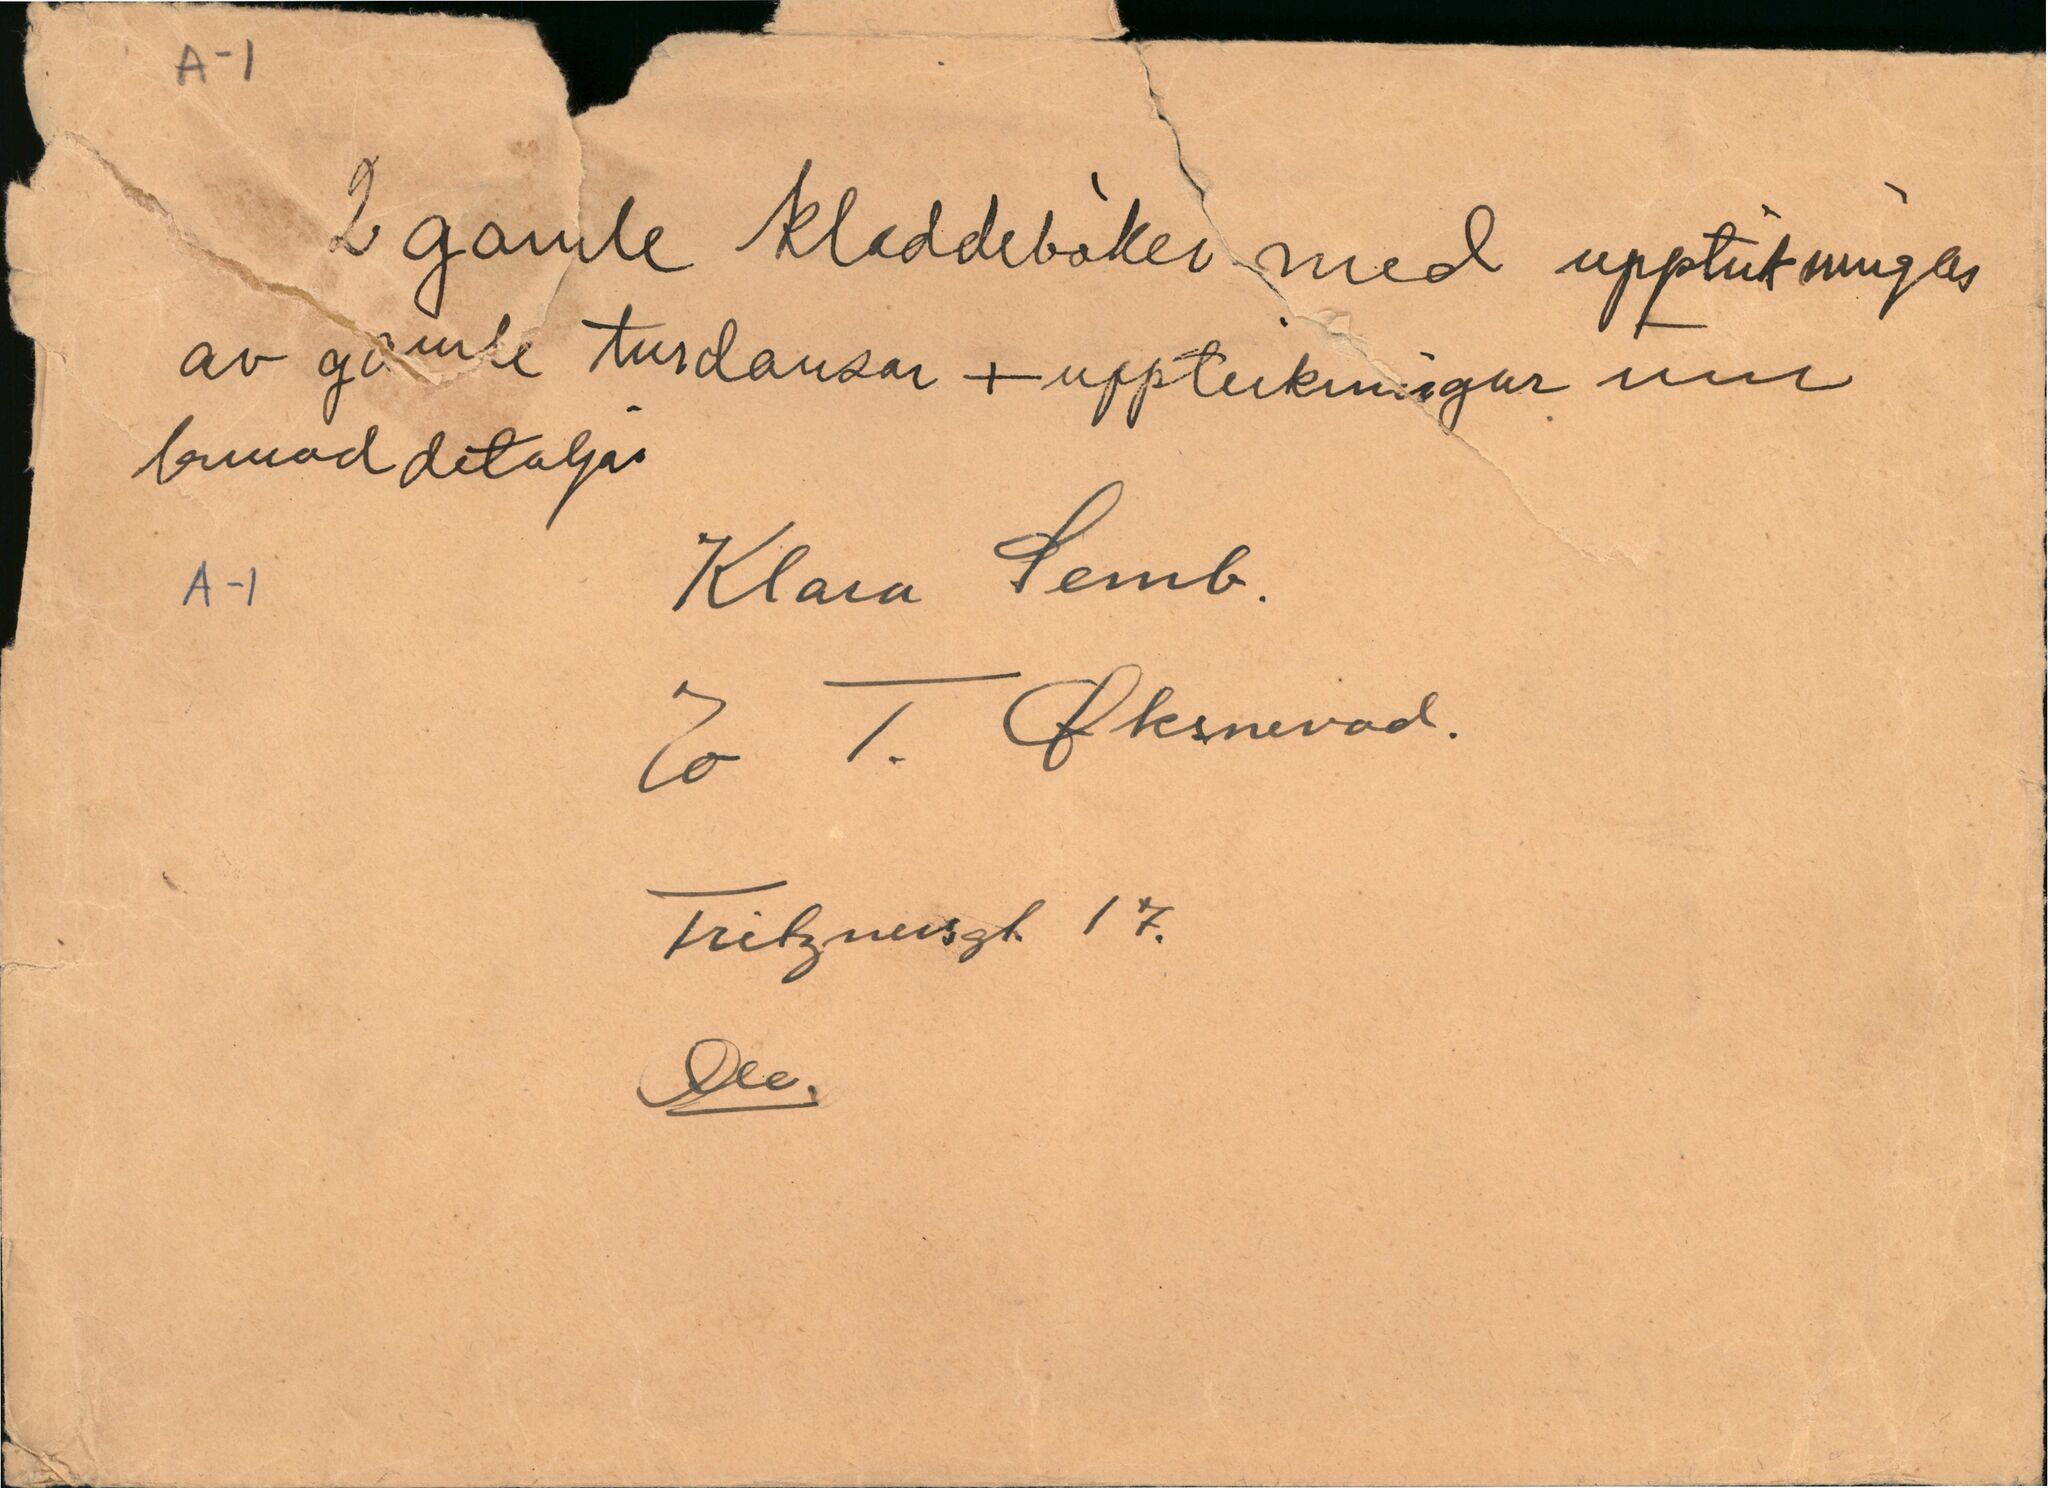 A-1
2 gamle kladdebøker med uppteikningar
av gamle turdansar + uppteikningar um
bunad detaljar
A-1
Klara Semb.
T. Øksnevad.
Fritznersgt. 17.